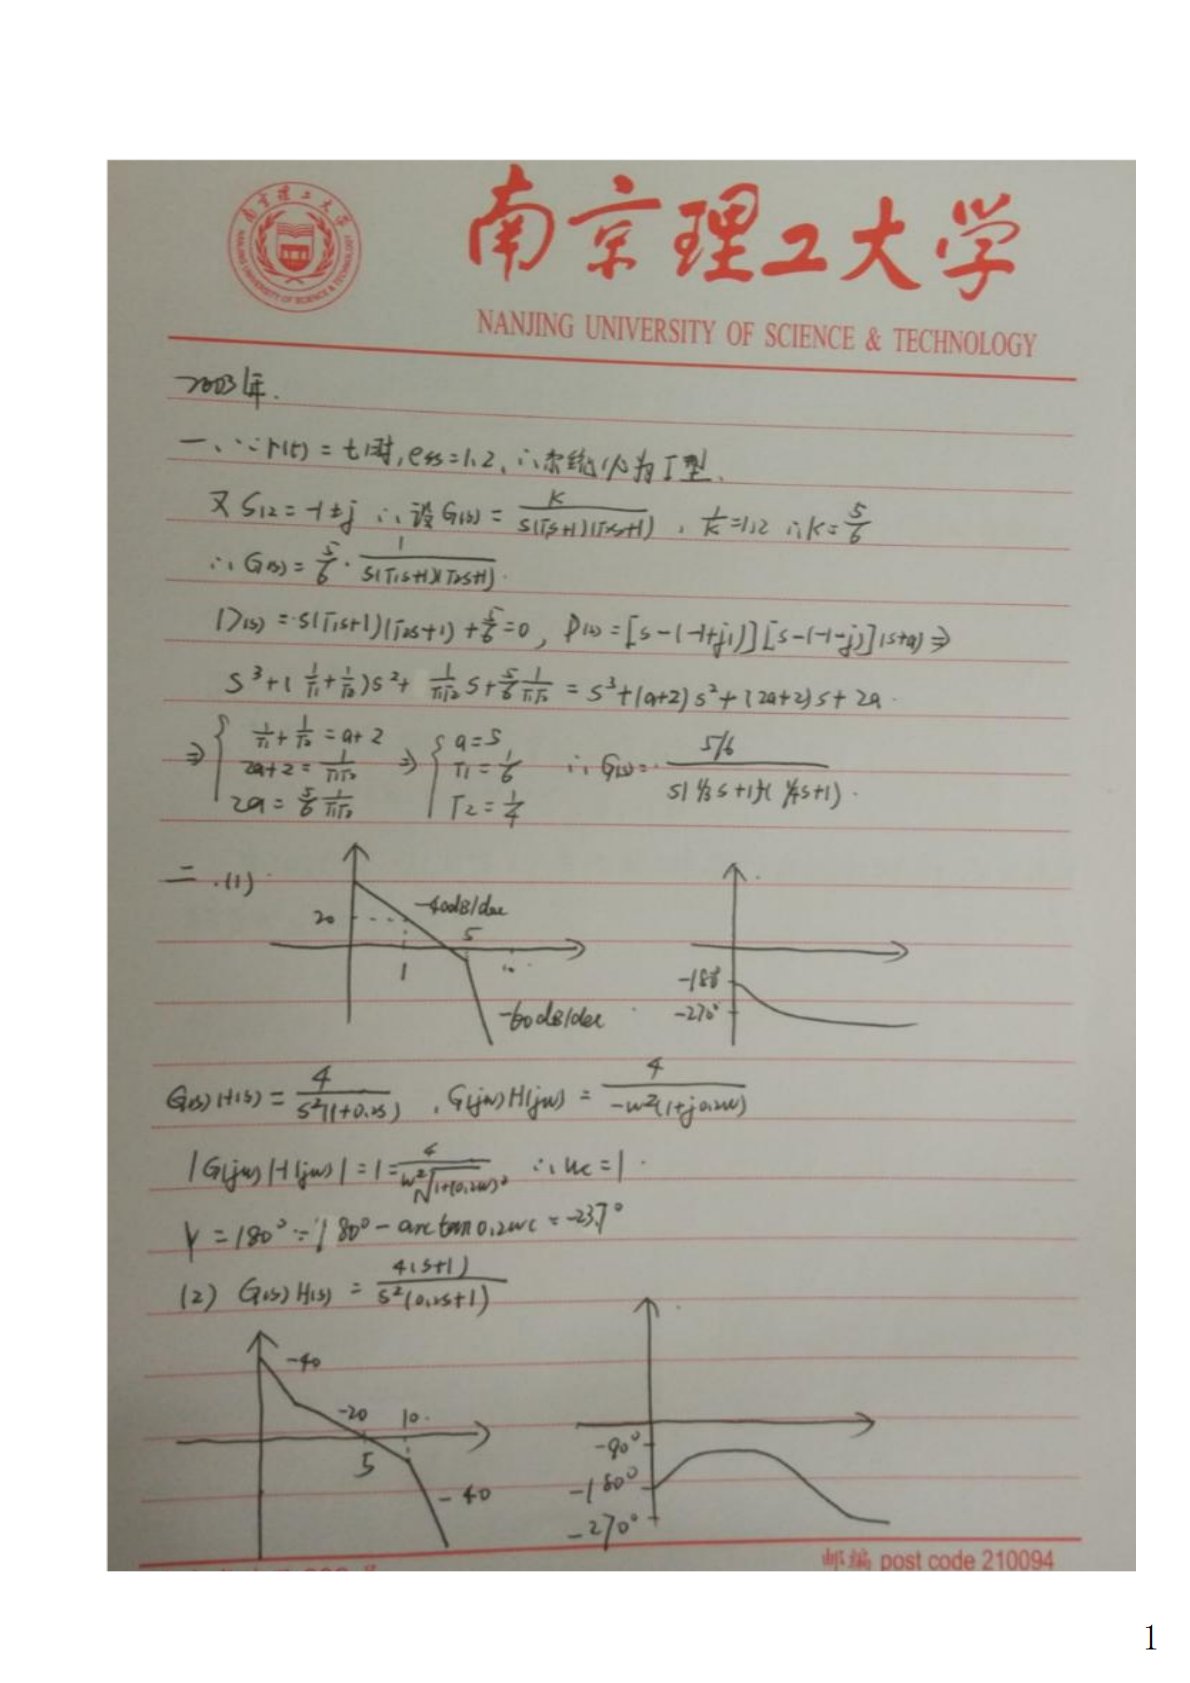 南京理工大学
NANJING UNIVERSITY OF SCIENCE & TECHNOLOGY
2003年.
一、∵r(t)=t时,ess=1.2,∴系统必为I型.
又S12=-1±j ∴设G(s)=K/(s(T1s+1)(T2s+1)),1/K=1.2 ∴K=5/6
∴G(s)=5/6·1/(s(T1s+1)(T2s+1)).
D(s)=s(T1s+1)(T2s+1)+5/6=0, D(s)=[s-(-1+j)][s-(-1-j)](s+a)⇒
s³+(1/T1+1/T2)s²+1/(T1T2)s+5/6 1/(T1T2)=s³+(a+2)s²+(2a+2)s+2a.
⇒{1/T1+1/T2=a+2 ⇒ {a=5
2a+2=1/(T1T2) T1=1/6 ∴G(s)=(5/6)/(s(1/3s+1)(1/4s+1)).
2a=5/6 1/(T1T2) T2=1/4
二.(1)
20 -40dB/dec 5 1 10 -60dB/dec
-180° -270°
G(s)H(s)=4/(s²(1+0.2s)),G(jw)H(jw)=4/(-w²(1+j0.2w))
|G(jw)H(jw)|=1=4/(w²√(1+(0.2w)²)) ∴wc=1.
γ=180°-180°-arctan0.2wc=-23.7°
(2) G(s)H(s)=4(s+1)/(s²(0.2s+1))
-40 -20 10 5 -40
-90° -180° -270°
邮编 post code 210094
1